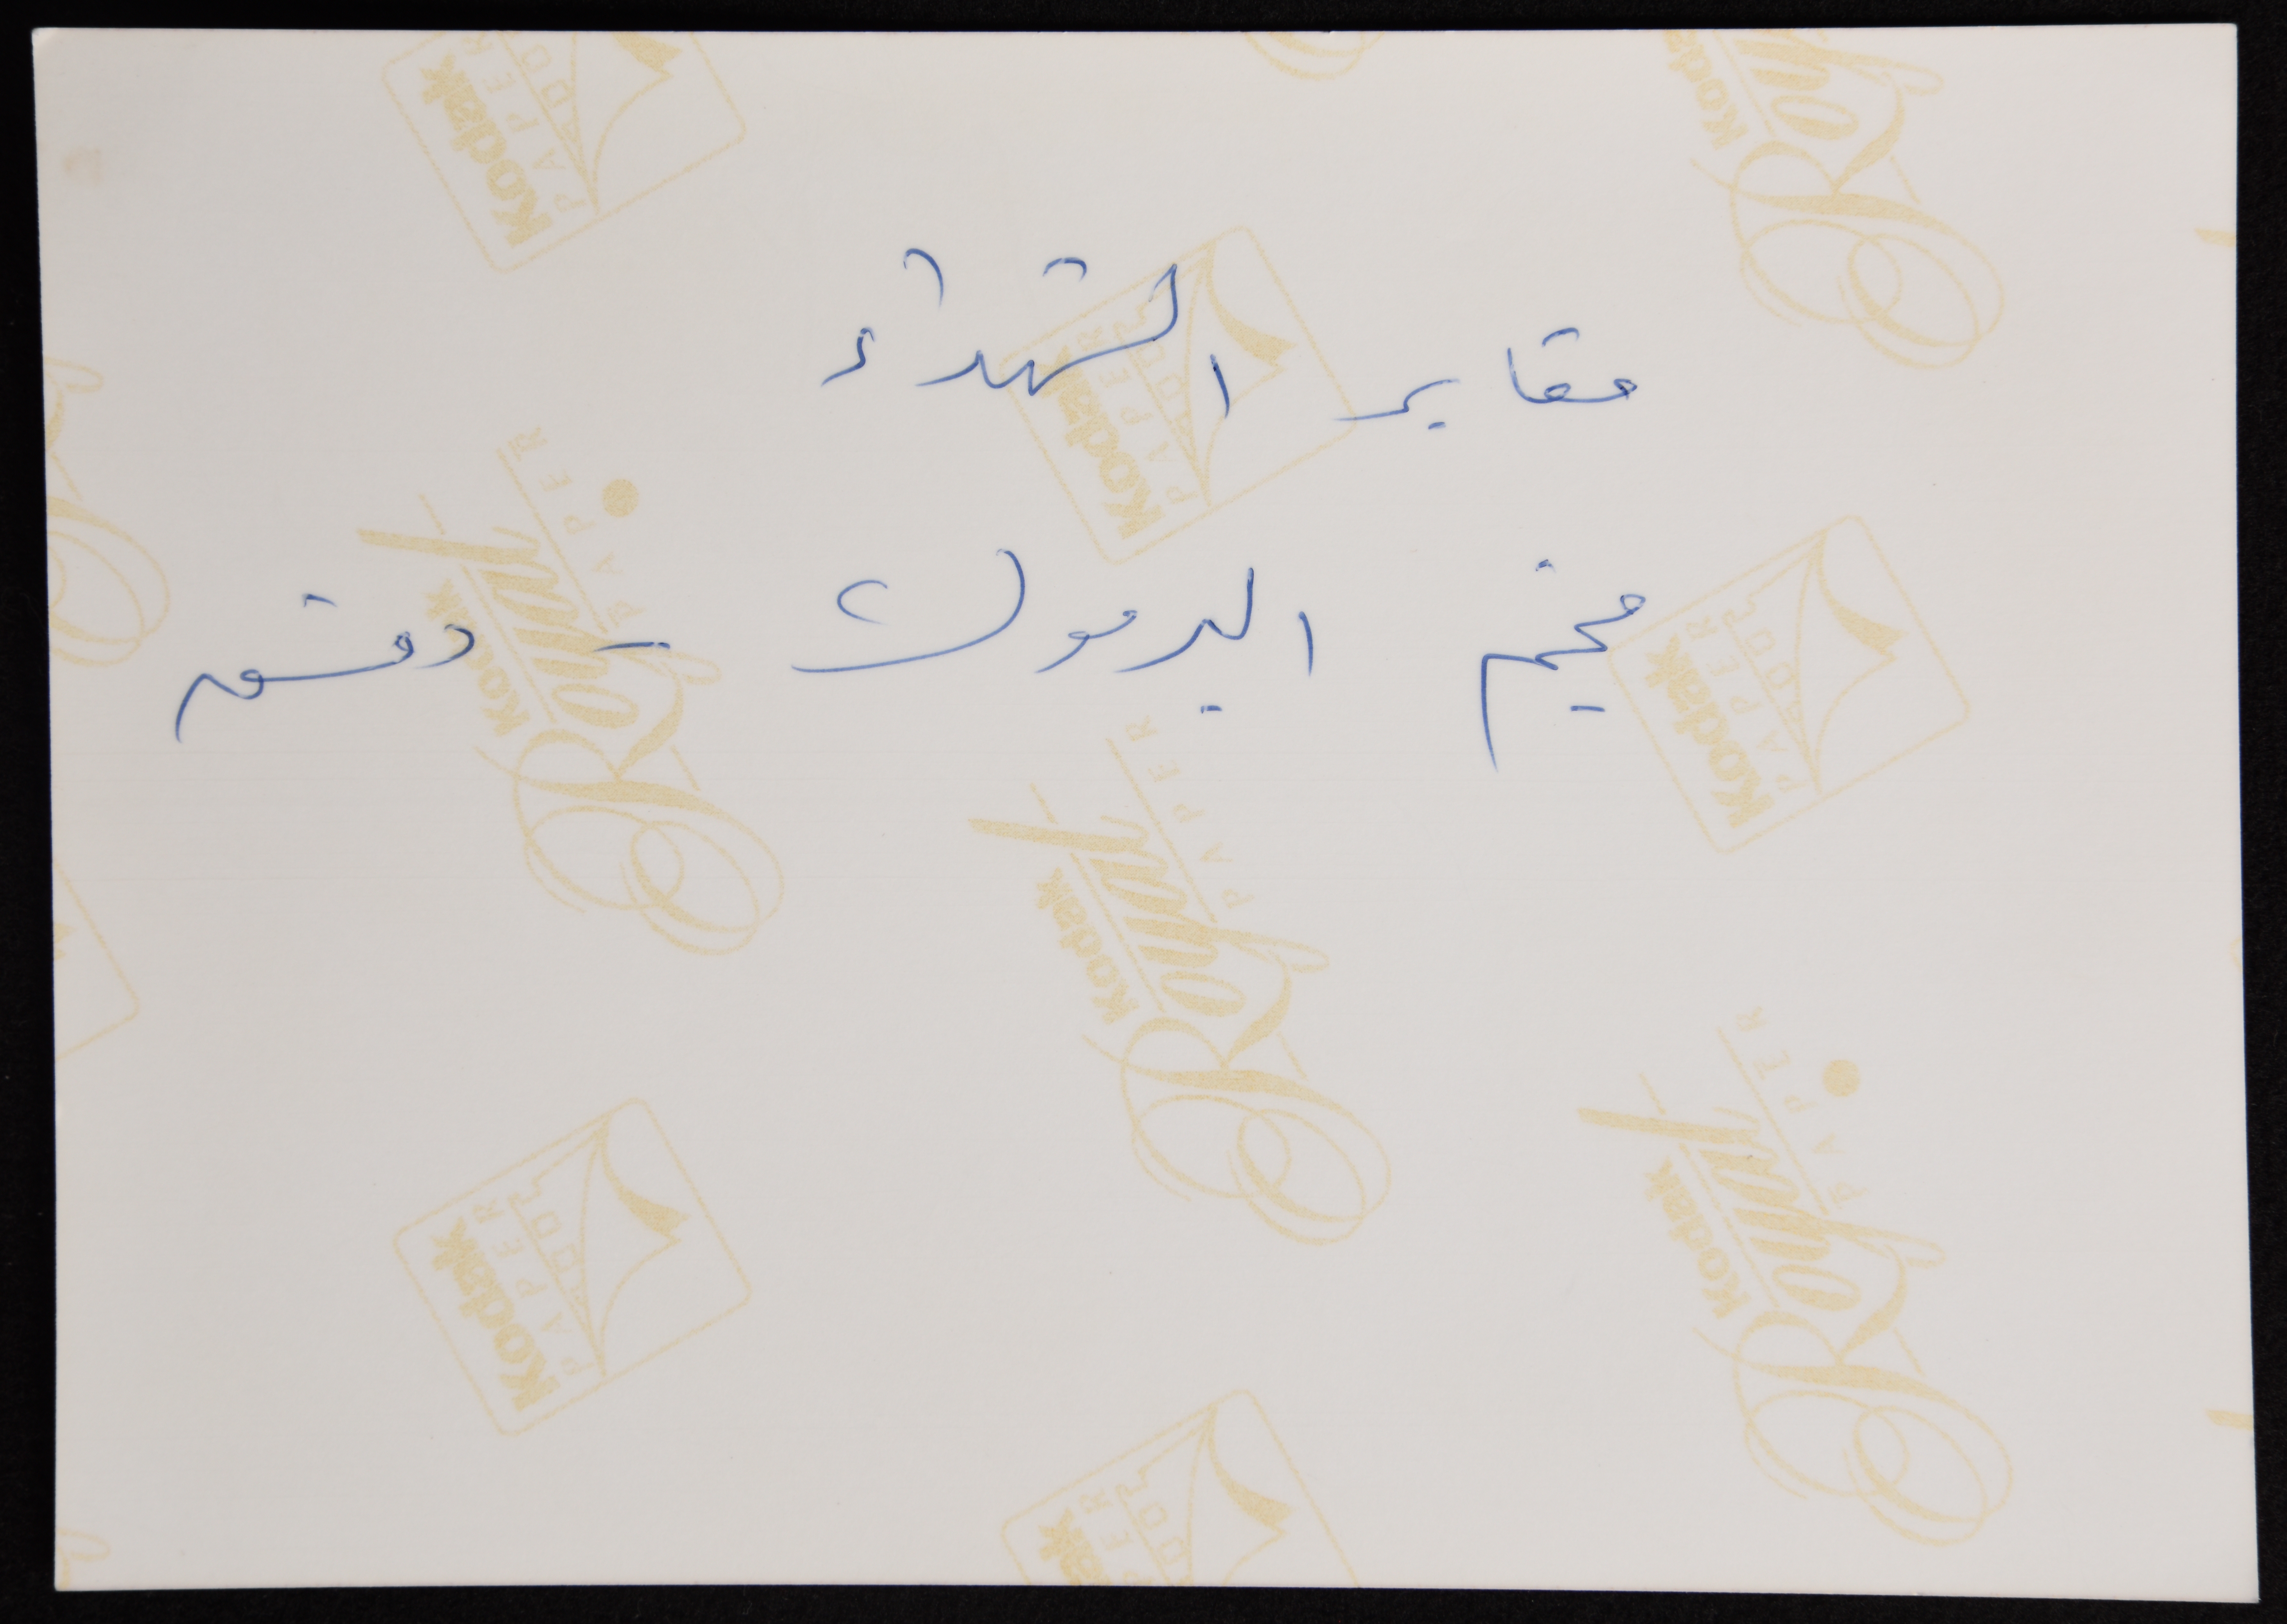 مقابر الشهداء
مخيم اليرموك - دمشق
Kodak
PAPER
Kodak
Royal
PAPER